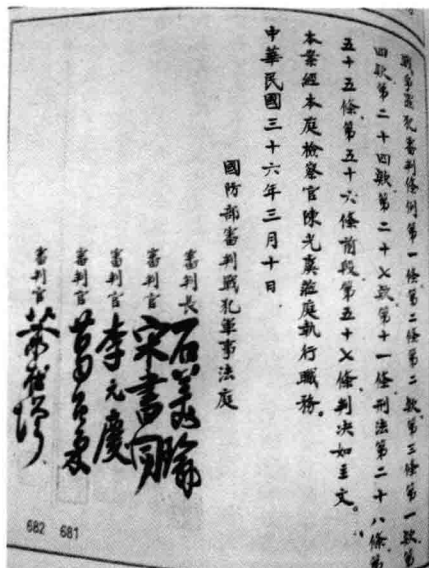 戰爭罪犯審判條例第一條第二條第二款第三條第一款第
四款第二十四款第二十七款第十一條刑法第二十八條第
五十五條第五十六條前段第五十七條判决如主文。
本案經本庭檢察官陳光虞蒞庭執行職務。
中華民國三十六年三月十日
國防部審判戰犯軍事法庭
審判長 石美瑜
審判官 宋書同
審判官 李元慶
審判官 葛召棠
審判官
682 681